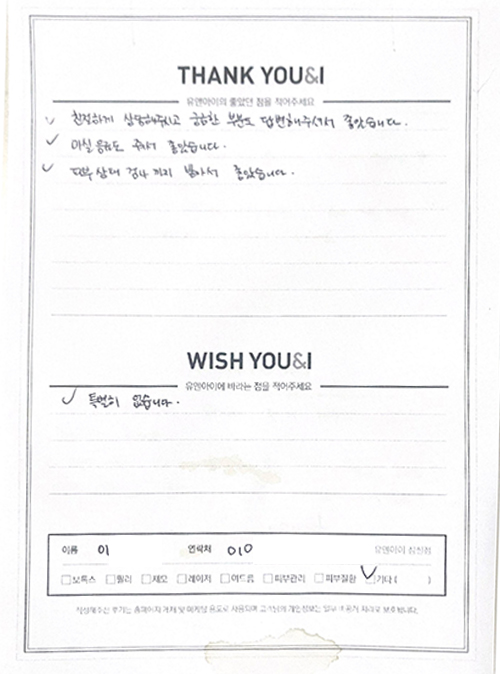 THANK YOU&I
유앤아이의 좋았던 점을 적어주세요
친절하게 상담해주시고 궁금한 부분도 답변해주셔서 좋았습니다.
마실 음료도 주셔서 좋았습니다.
피부 상태 검사까지 받아서 좋았습니다.
WISH YOU&I
유앤아이에 바라는 점을 적어주세요
특별히 없습니다.
이름 이 연락처 010 유앤아이 삼성점
보톡스 필러 제모 레이저 여드름 피부관리 피부질환 기타 ( )
작성해주신 후기는 홈페이지 게재 및 마케팅 용도로 사용되며 고객님의 개인정보는